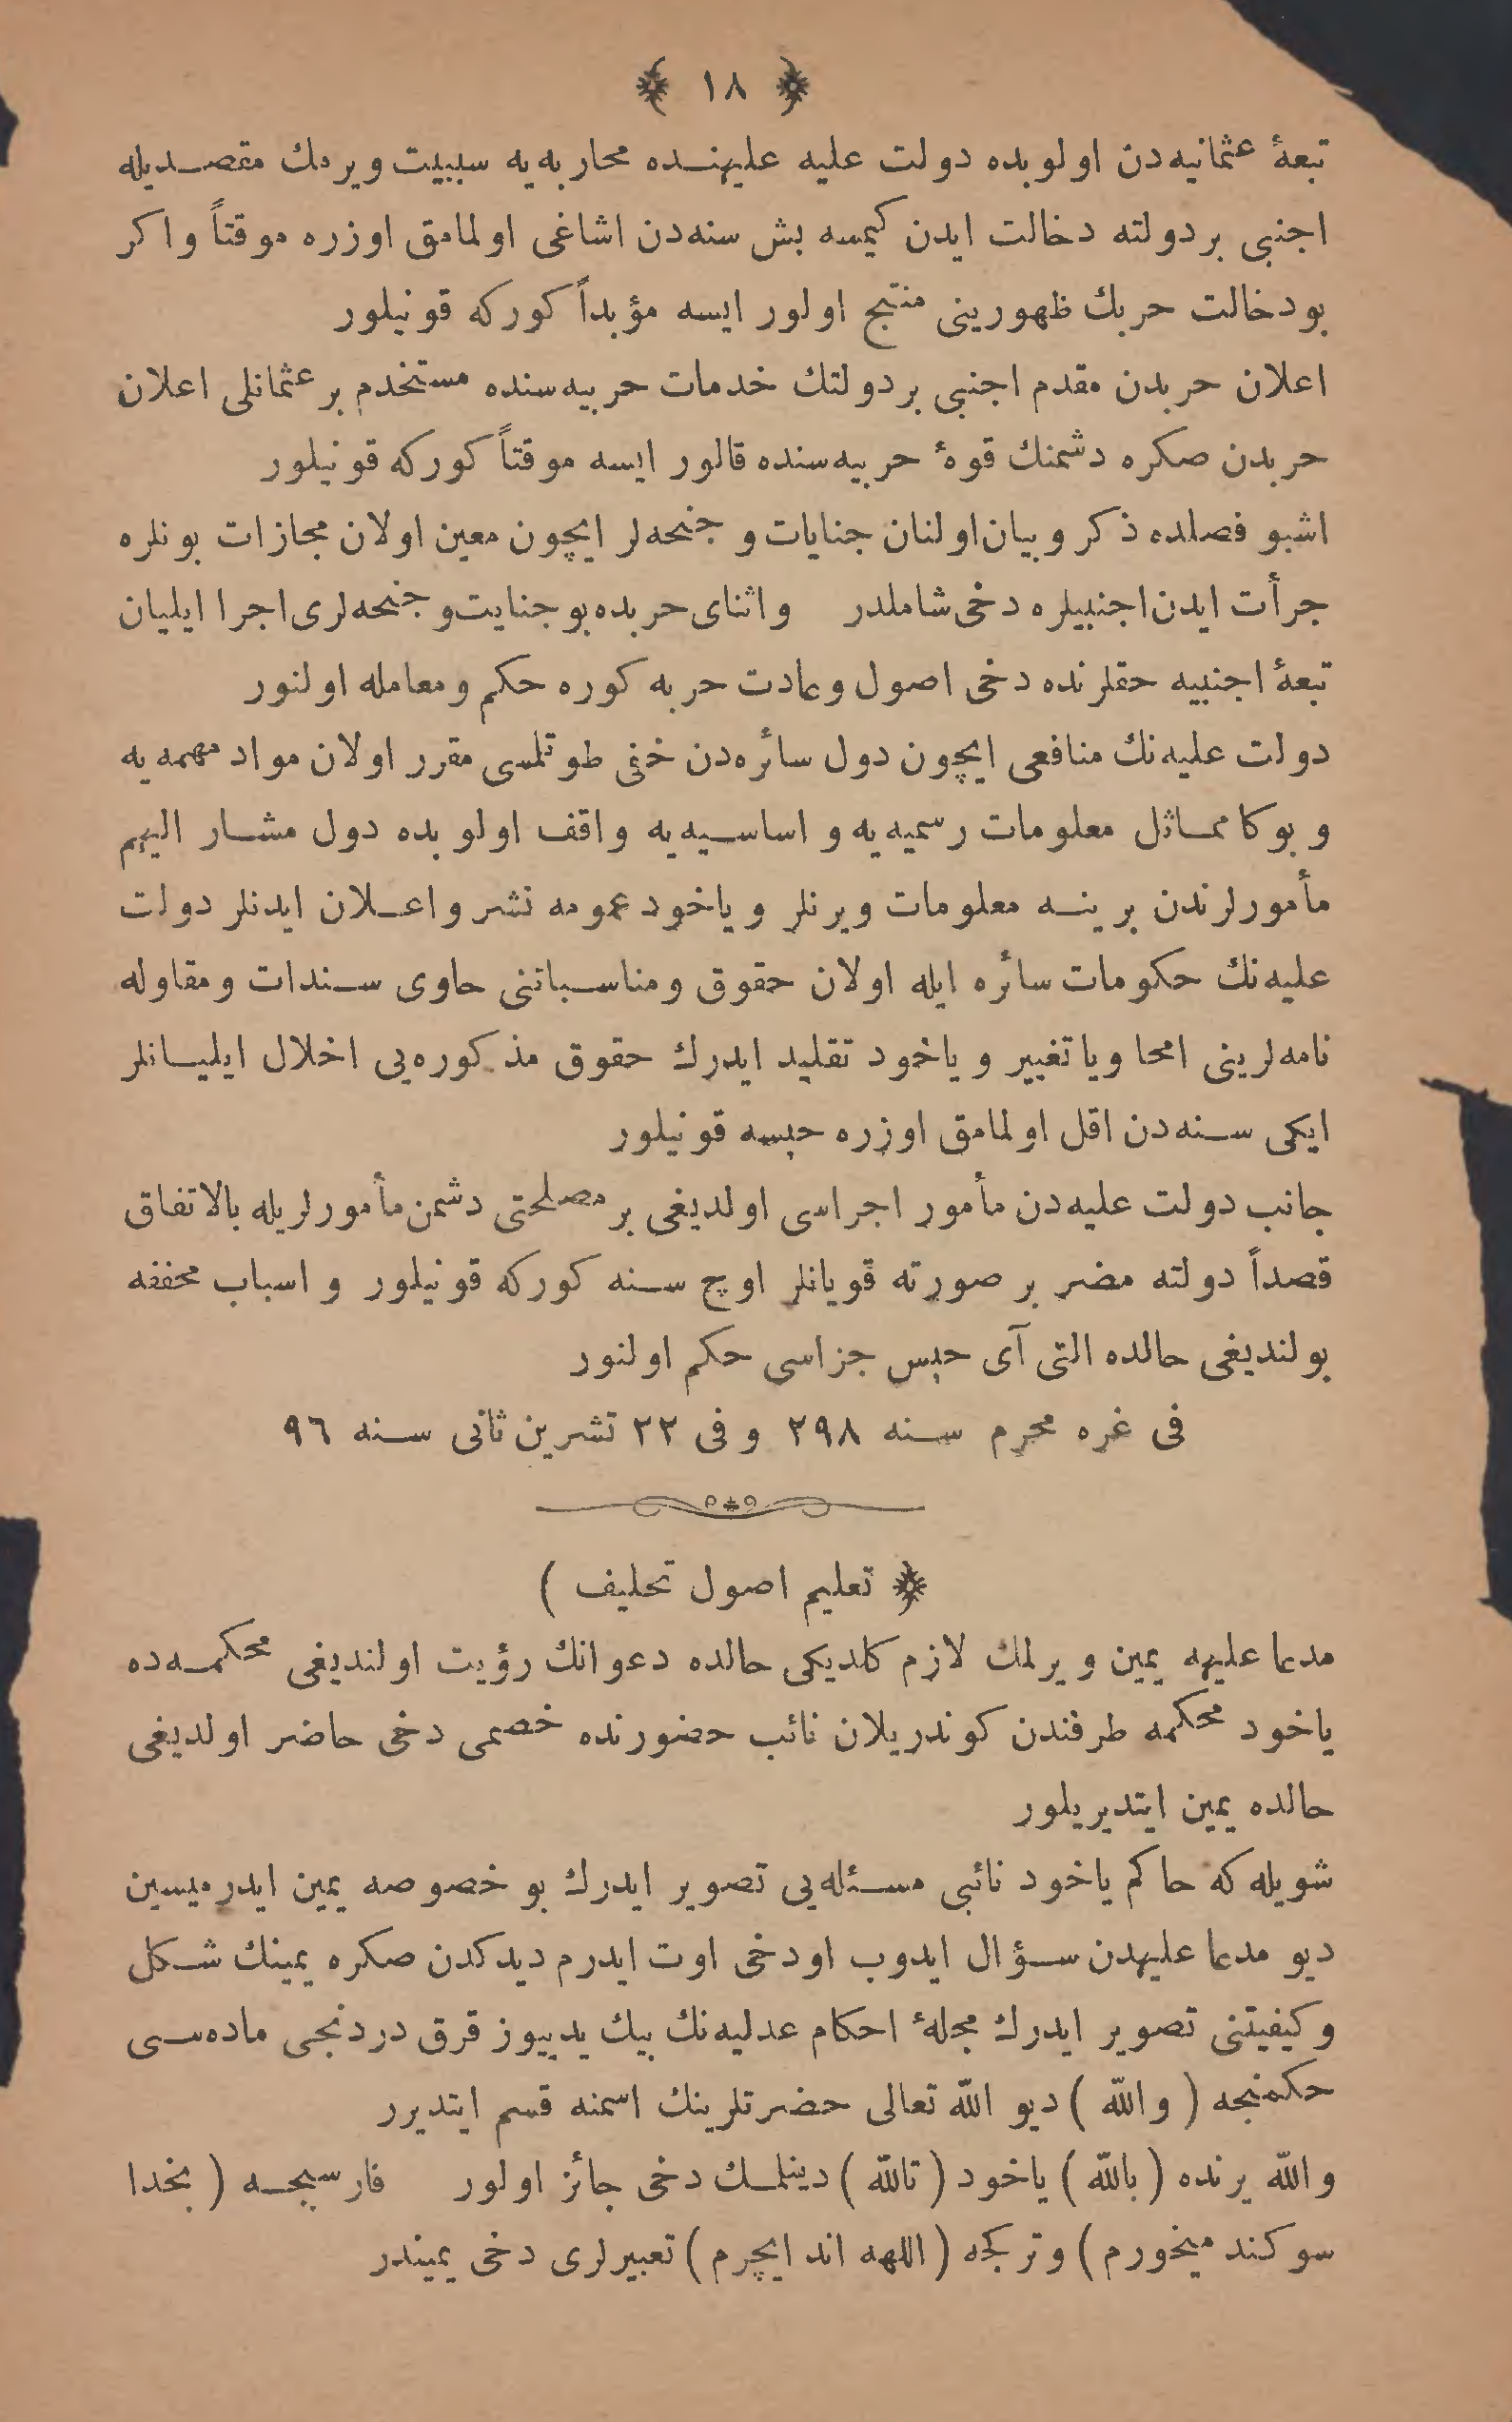 ﴿ ١٨ ﴾
تبعهٔ عثمانیه‌دن اولوبده دولت علیه علیهنده محاربه‌یه سببیت ویرمك مقصدیله
اجنبی بر دولته دخالت ایدن کیمسه بش سنه‌دن اشاغی اولمامق اوزره موقتاً واکر
بودخالت حربك ظهورینی منتج اولور ایسه مؤبداً کورکه قونیلور
اعلان حربدن مقدم اجنبی بر دولتك خدمات حربیه‌سنده مستخدم بر عثمانلی اعلان
حربدن صکره دشمنك قوهٔ حربیه‌سنده قالور ایسه موقتاً کورکه قونیلور
اشبو فصلده ذکر و بیان اولنان جنایات و جنحه‌لر ایچون معین اولان مجازات بونلره
جرأت ایدن اجنبیلره دخی شاملدر واثنای حربده بو جنایت و جنحه‌لری اجرا ایلیان
تبعهٔ اجنبیه حقلرنده دخی اصول و عادت حربه کوره حکم و معامله اولنور
دولت علیه‌نك منافعی ایچون دول سائره‌دن خفی طوتلمسی مقرر اولان مواد مهمه‌یه
و بوکا مماثل معلومات رسمیه‌یه و اساسیه‌یه واقف اولوبده دول مشار الیهم
مأمورلرندن برینه معلومات ویرنلر و یاخود عمومه نشر واعلان ایدنلر دولت
علیه‌نك حکومات سائره ایله اولان حقوق ومناسباتنی حاوی سندات ومقاوله
نامه‌لرینی امحا ویا تغییر و یاخود تقلید ایدرك حقوق مذکوره‌یی اخلال ایلیانلر
ایکی سنه‌دن اقل اولمامق اوزره حبسه قونیلور
جانب دولت علیه‌دن مأمور اجراسی اولدیغی بر مصلحتی دشمن مأمورلریله بالاتفاق
قصداً دولته مضر بر صورته قویانلر اوچ سنه کورکه قونیلور و اسباب مخففه
بولندیغی حالده التی آی حبس جزاسی حکم اولنور
فی غره محرم سنه ٢٩٨ وفی ٢٢ تشرین ثانی سنه ٩٦
﴿ تعلیم اصول تحلیف )
مدعا علیهه یمین ویرلمك لازم کلدیکی حالده دعوانك رؤیت اولندیغی محکمه‌ده
یاخود محکمه طرفندن کوندریلان نائب حضورنده خصمی دخی حاضر اولدیغی
حالده یمین ایتدیریلور
شویله که حاکم یاخود نائبی مسئله‌یی تصویر ایدرك بو خصوصه یمین ایدرمیسین
دیو مدعا علیهدن سؤال ایدوب اودخی اوت ایدرم دیدکدن صکره یمینك شکل
وکیفیتنی تصویر ایدرك مجلهٔ احکام عدلیه‌نك بیك یدییوز قرق دردنجی ماده‌سی
حکمنجه ( والله ) دیو الله تعالی حضرتلرینك اسمنه قسم ایتدیرر
والله یرنده ( بالله ) یاخود ( تالله ) دینلمك دخی جائز اولور فارسیجه ( بخدا
سوکند میخورم ) وترکجه ( اللهه اند ایچرم ) تعبیرلری دخی یمیندر